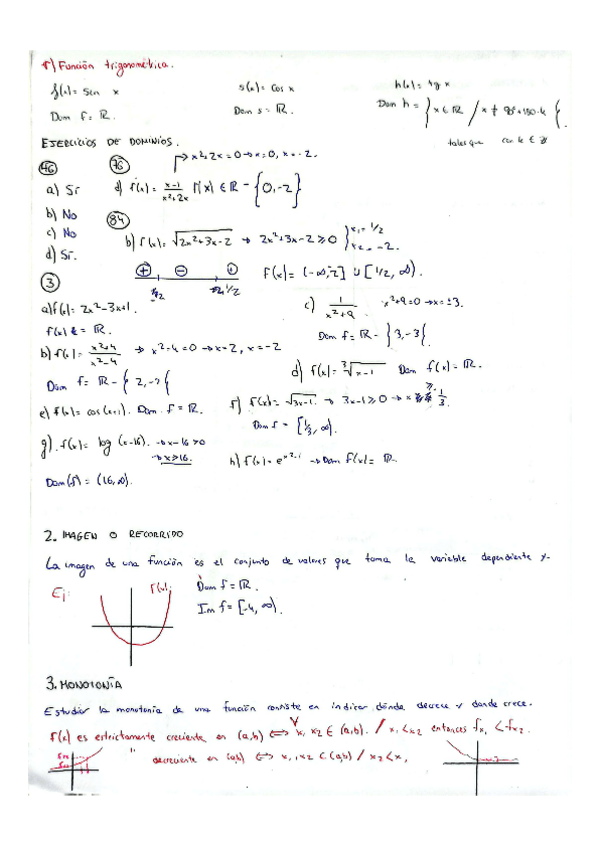 r) Función trigonométrica.
f(x) = Sen x
s(x) = Cos x
h(x) = tg x
Dom f = ℝ.
Dom s = ℝ.
Dom h = } x ∈ ℝ / x ≠ 90º+180·k {.
tales que con k ∈ ℤ
EJERCICIOS DE DOMINIOS.
46
76
→ x²+2x = 0 → x = 0, x = -2.
a) Sí
d) f(x) = x-1 / x²+2x f(x) ∈ ℝ - {0,-2}
b) No
84
c) No
b) f(x) = √2x²+3x-2 → 2x²+3x-2 ≥ 0 } x₁ = 1/2
x₂ = -2.
d) Sí.
+ - +
1/2
f(x) = (-∞,-2] ∪ [1/2, ∞).
3
a) f(x) = 2x²-3x+1.
f(x) ∈ = ℝ.
c) 1 / x²+9 x²+9=0 → x = ±3.
Dom f = ℝ - } 3,-3 {.
b) f(x) = x²+4 / x²-4 → x²-4 = 0 → x = 2, x = -2
Dom f = ℝ - { 2,-2 {
d) f(x) = ³√x-1 Dom f(x) = ℝ.
e) f(x) = cos(x+1). Dom f = ℝ.
f) f(x) = √3x-1 → 3x-1 ≥ 0 → x ≥ 1/3.
Dom f = [1/3, ∞).
g) f(x) = log (x-16). → x-16 > 0
→ x > 16.
h) f(x) = e^x²-1 → Dom f(x) = ℝ.
Dom(f) = (16, ∞).
2. IMAGEN O RECORRIDO
La imagen de una función es el conjunto de valores que toma la variable dependiente y.
Ej:
f(x).
Dom f = ℝ.
Im f = [-4, ∞).
3. MONOTONÍA
Estudiar la monotonía de una función consiste en indicar dónde decrece y donde crece.
f(x) es estrictamente creciente en (a,b) ⟺ ∀ x₁ x₂ ∈ (a,b). / x₁ < x₂ entonces fx₁ < fx₂.
" decreciente en (a,b) ⟺ x₁, x₂ ⊂ (a,b) / x₂ < x₁